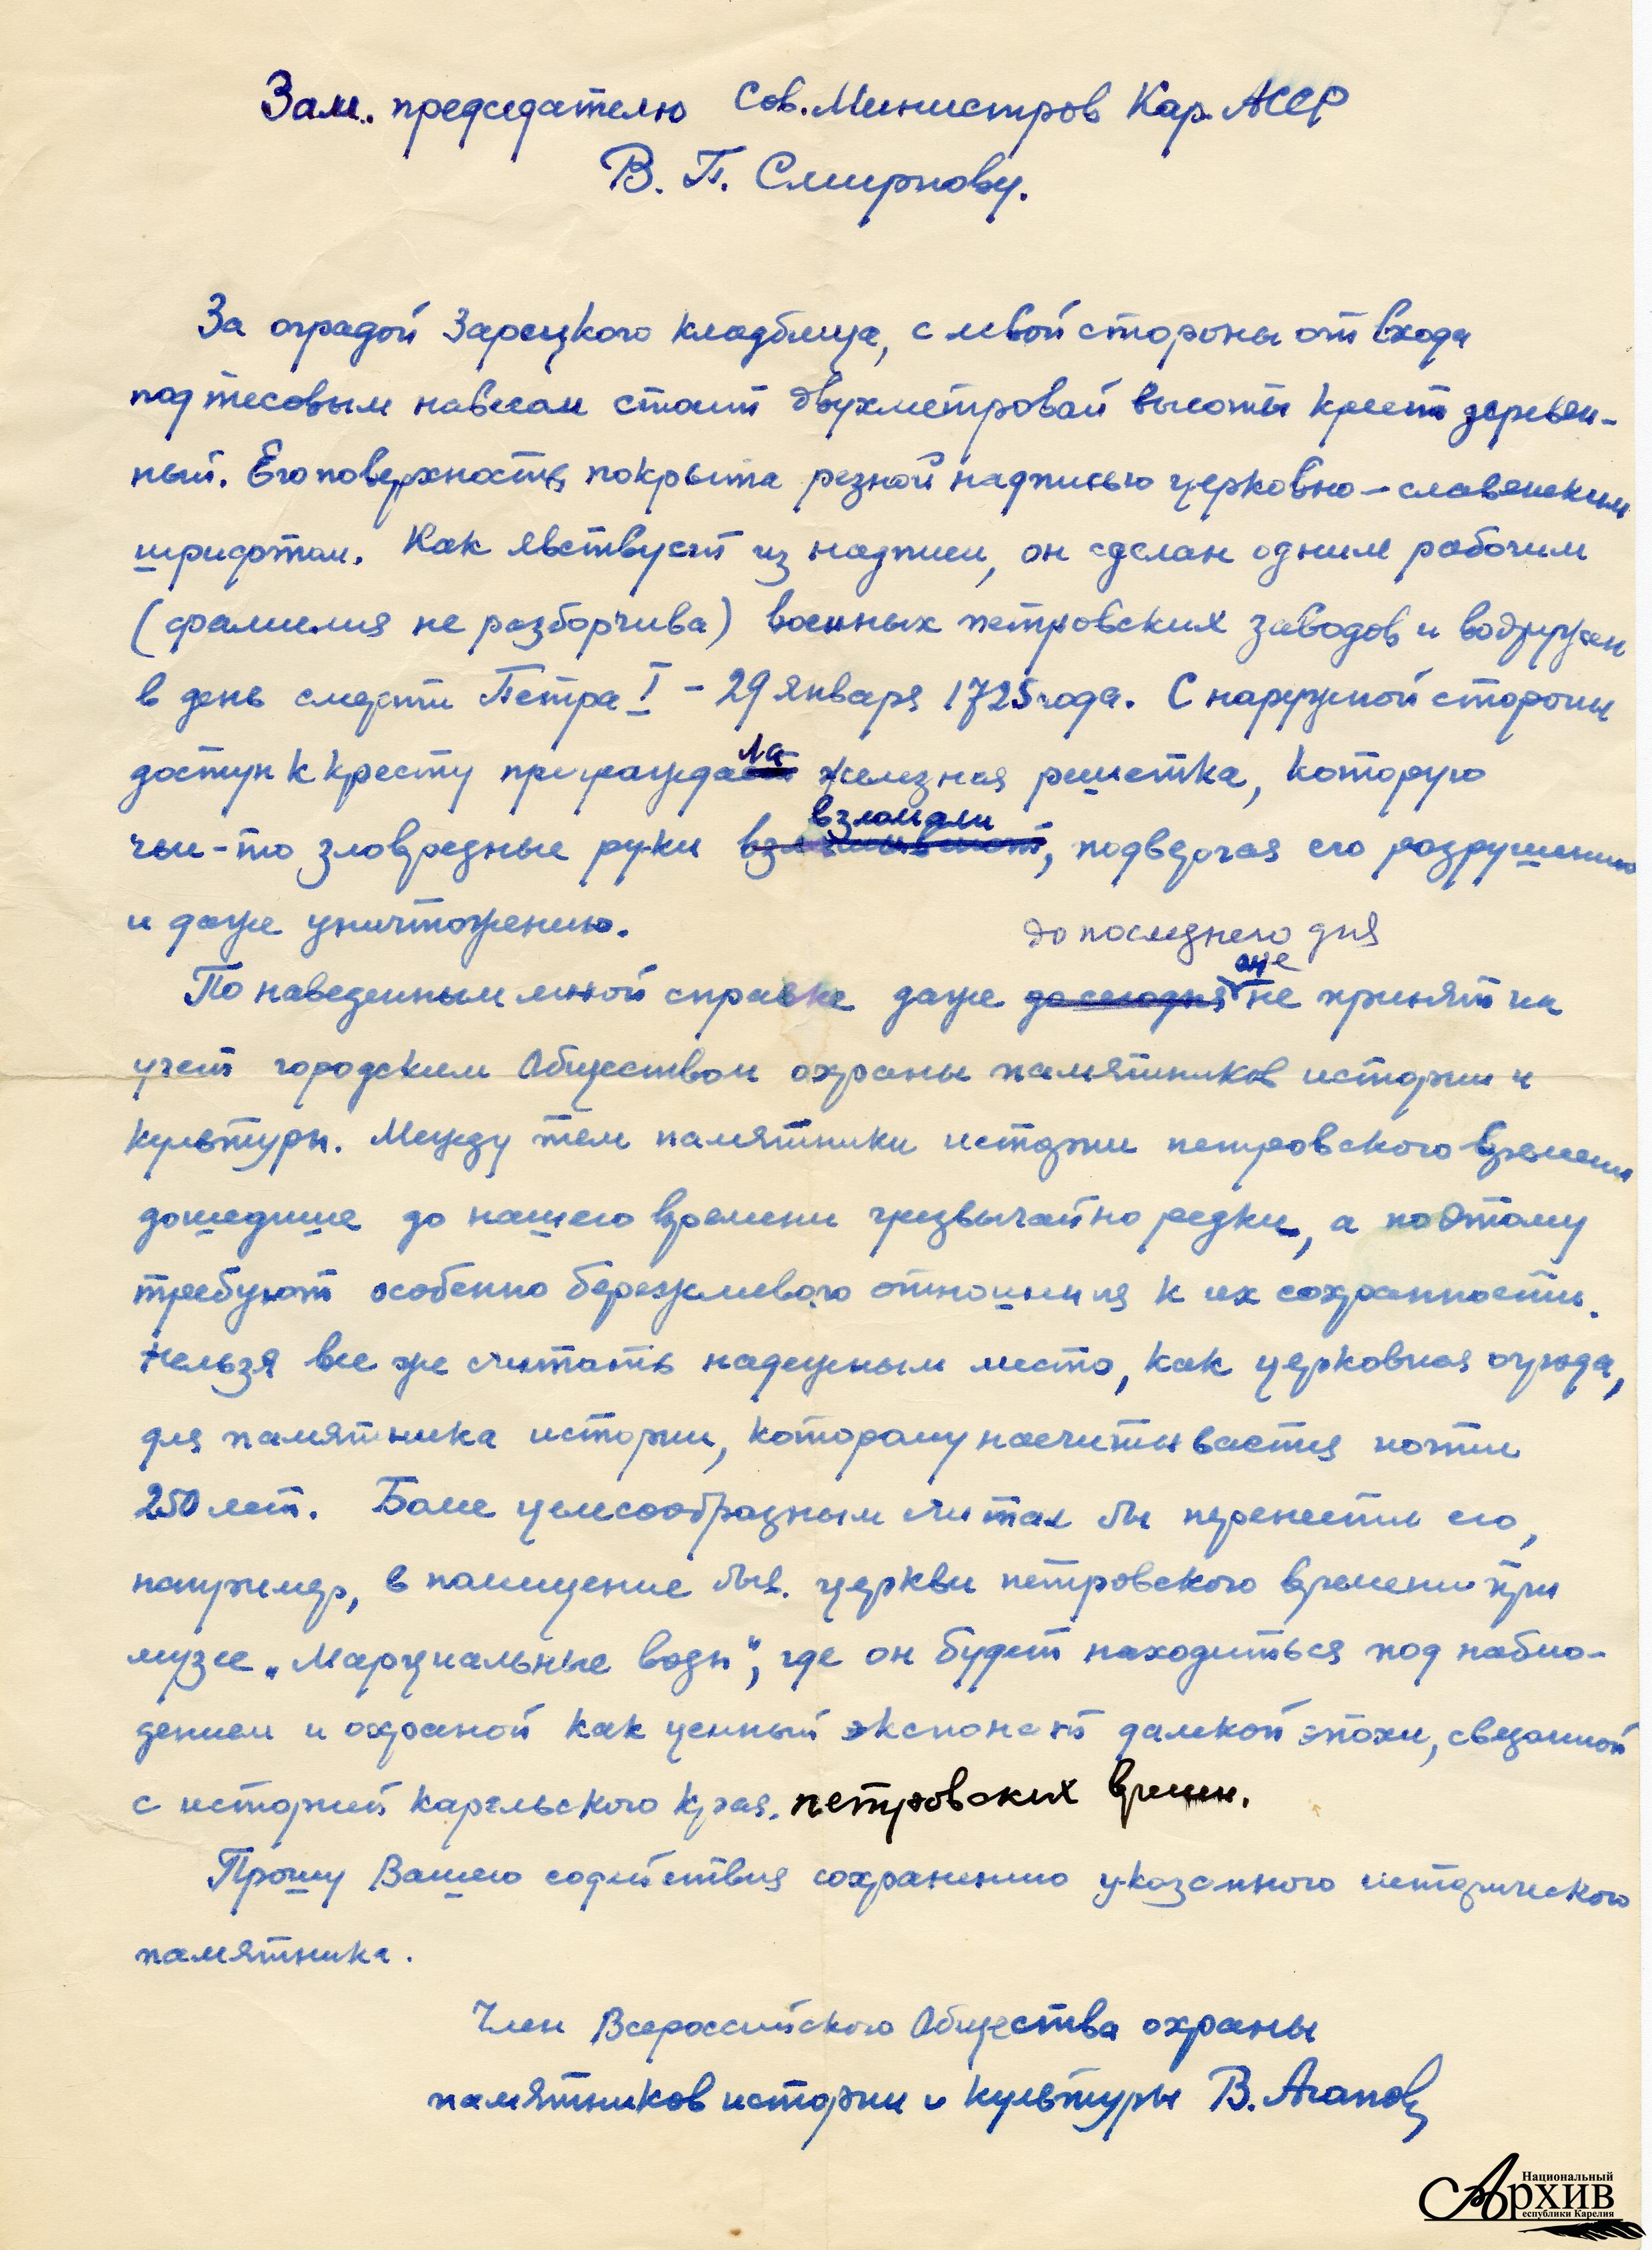 Зам. председателю Сов. Министров Кар. АССР
В. П. Смирнову.
За оградой Зарецкого кладбища, с левой стороны от входа
под тесовым навесом стоит двухметровой высоты крест деревян-
ный. Его поверхность покрыта резной надписью церковно-славянским
шрифтом. Как явствует из надписи, он сделан одним рабочим
(фамилия не разборчива) военных петровских заводов и водружен
в день смерти Петра I - 29 января 1725 года. С наружной стороны
ла
доступ к кресту преграждает железная решетка, которую
взломали
чьи-то зловредные руки взламывают, подвергая его разрушению
и даже уничтожению.
до последнего дня
еще
По наведенным мной справке даже до сегодня не принят на
учет городским Обществом охраны памятников истории и
культуры. Между тем памятники истории петровского времени
дошедшие до нашего времени чрезвычайно редки, а поэтому
требуют особенно бережливого отношения к их сохранности.
Нельзя все же считать надежным место, как церковная ограда,
для памятника истории, которому насчитывается почти
250 лет. Более целесообразным считал бы перенести его,
например, в помещение быв. церкви петровского времени при
музее „Марциальные воды", где он будет находиться под наблю-
дением и охраной как ценный экспонат далекой эпохи, связанной
с историей Карельского края. петровских времен.
Прошу Вашего содействия сохранению указанного исторического
памятника.
Член Всероссийского Общества охраны
памятников истории и культуры В. Агапов
Национальный
Архив
Республики Карелия